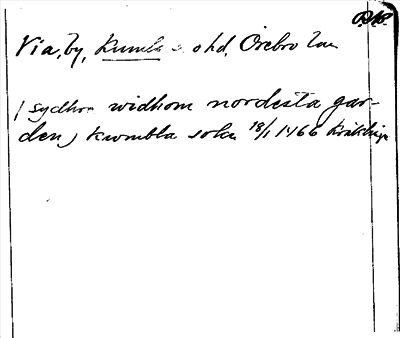 Via, by, Kumla s. o hd, Örebro län
( sydhra widhom nordesta gar-
den) kwmbla sokn 18/1 1466